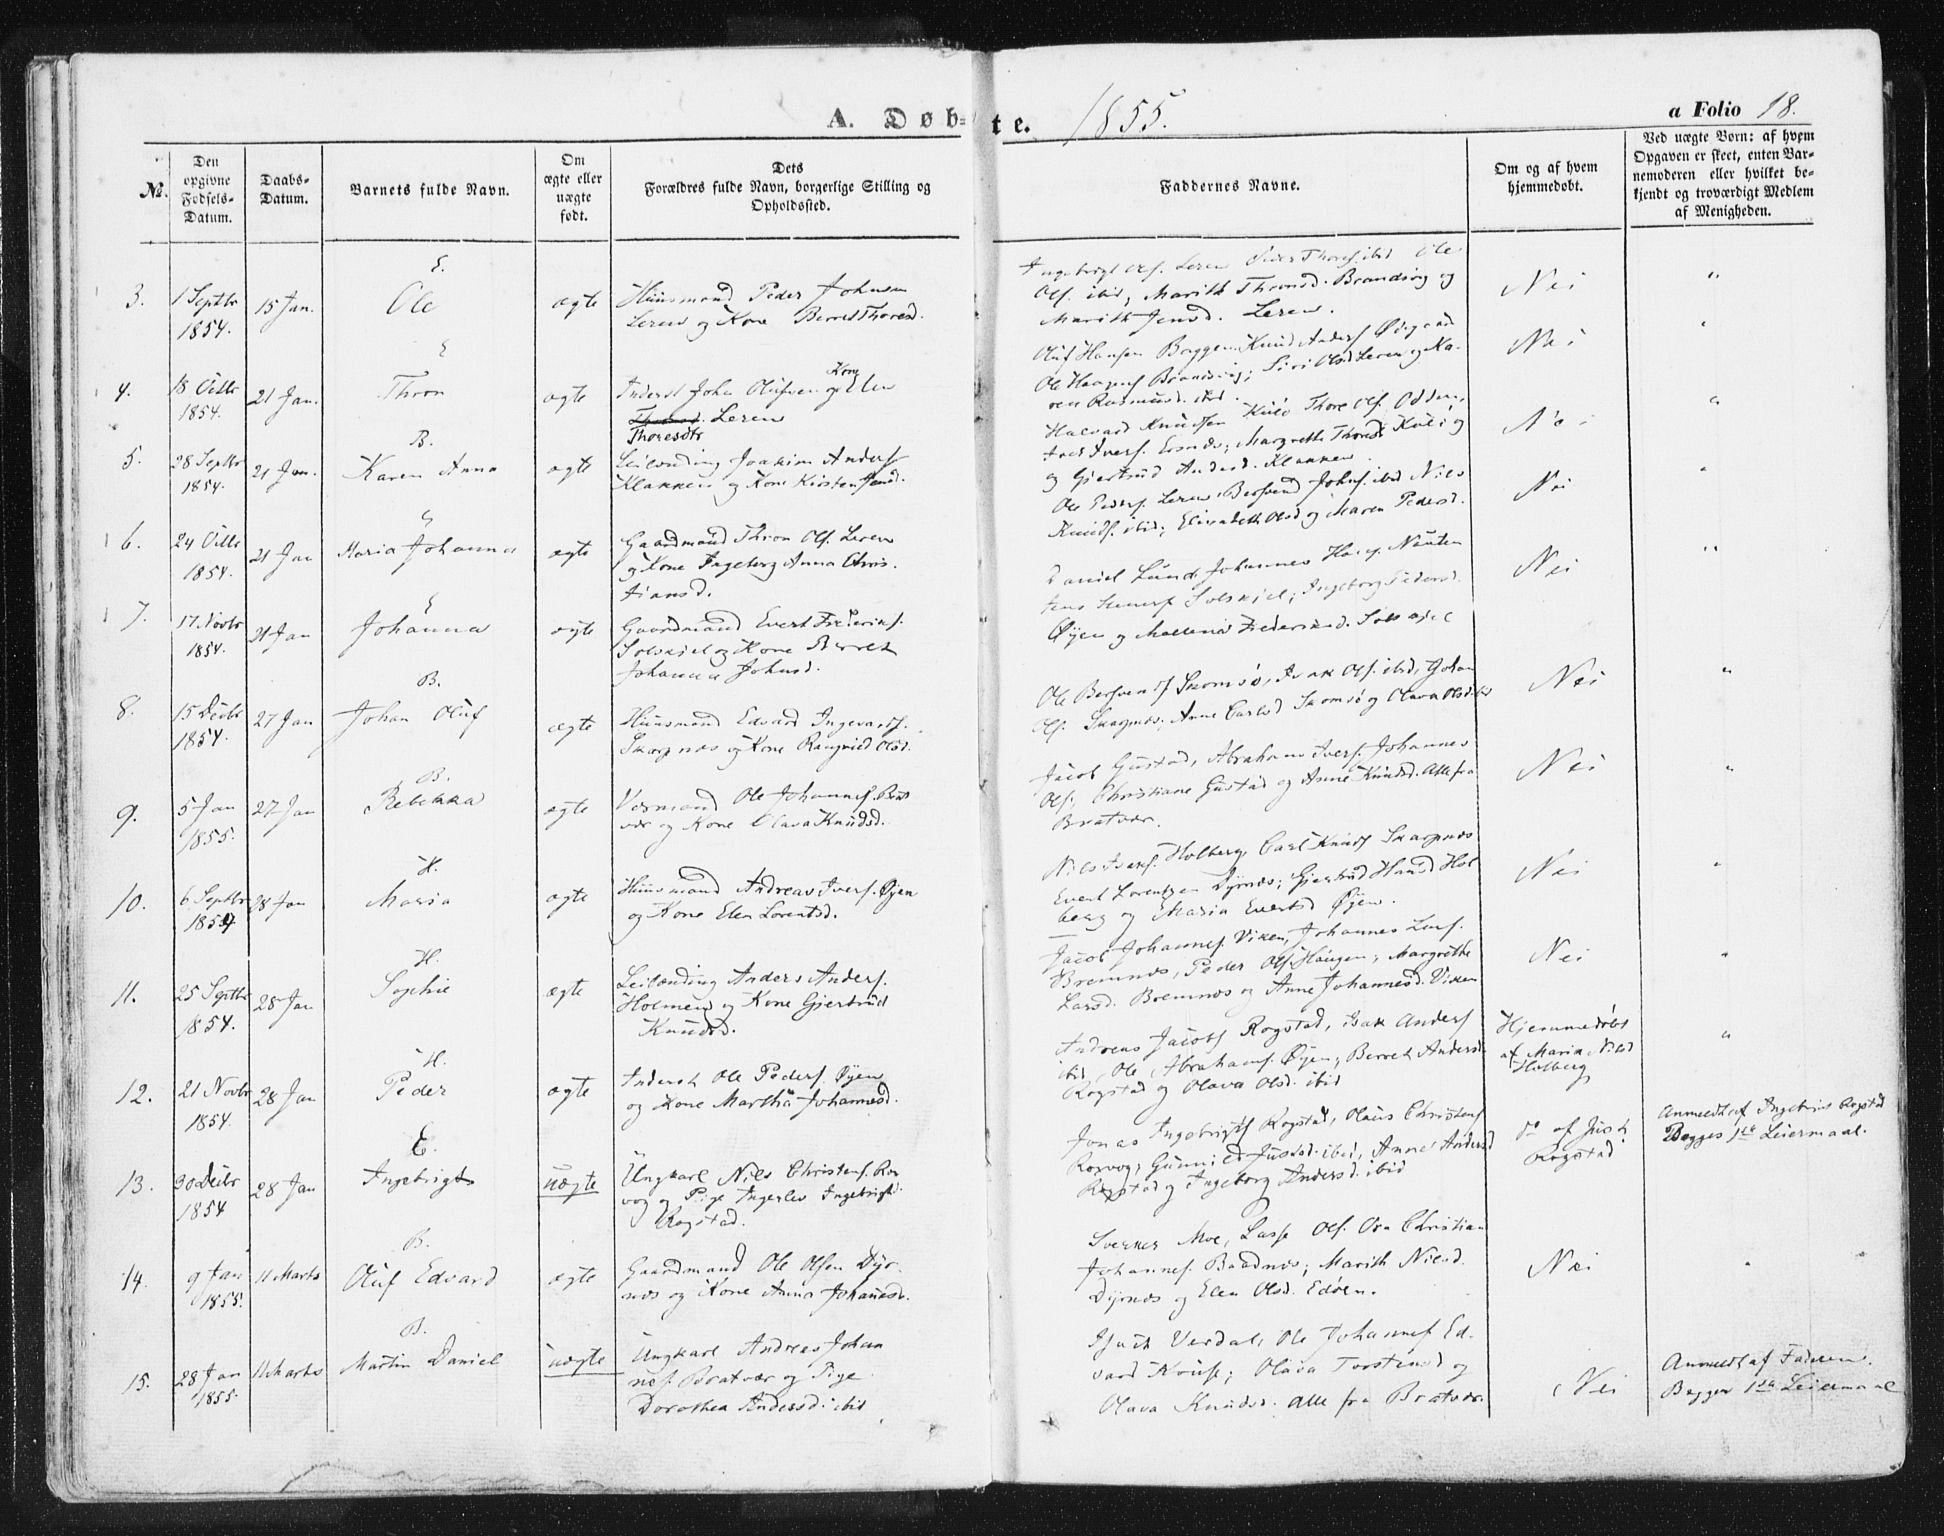 A. Døbte. 1855. a Folio 18.
No.
Den opgivne Fødsels-Datum.
Daabs-Datum.
Barnets fulde Navn.
Om ægte eller uægte født.
Dets Forældres fulde Navn, borgerlige Stilling og Opholdssted.
Faddernes Navne.
Om og af hvem hjemmedøbt.
Ved uægte Børn: af hvem Opgaven er skeet, enten Barnemoderen eller hvilket bekjendt og troværdigt Medlem af Menigheden.
E.
3. 1 Septbr 1854. 15 Jan. Ole ægte
Huusmand Peder Johnsen
Leren og Kone Berret Thoresd.
Ole
Ols. ibid; Marith Thronsd. Brandsvig og
Marith Jensd. Leren.
Nei "
E
4. 18 Octbr 1854. 21 Jan. Thron ægte
Inderst John Olufsen og Kone Elen
Leren
Thoresdtr
Oluf Hansen Bryggen Knud Anders Ødegaard
Ole Haagens Brandsvig; Siri Olsd Leren og Ka-
ren Rasmusd. ibid.
Nei "
B.
5. 28 Septbr 1854. 21 Jan. Karen Anna ægte
Leilending Joakim Anders
Klakken og Kone Kirsten
Halvard Knudsen Kulø Thore Ols. Odden,
Ivers. Ersnæs; Margrethe Thoresd Kulø
og Gjertrud Andersd. Klakken.
Nei "
E
6. 24 Octbr 1854. 21 Jan Maria Johanna ægte
Gaardmand Thron Ols. Leren
og Kone Ingeborg Anna Chris-
tiansd.
Ole Peders. Leren Bersvend Johns. ibid Nils
Knuds. ibid; Elisabeth Olsd og Maren Pedersd.
Nei "
E
7. 17. Novbr 1854. 21 Jan Johanna ægte
Gaardmand Evert Frederiks.
Solskjel og Kone Berret
Johanna Johnsd.
Daniel Lund Johannes Hans. Nauten
Solskjel; Ingeborg Pedersd.
Øyen og Mallena Frederiksd. Solskjel
Nei "
B.
8. 15 Decbr 1854. 27 Jan Johan Oluf ægte
Huusmand Edvard Ingevalds.
Skarpnes og Kone Rangnild Olsd.
Ole Bersvends Skomsø, Isak Ols. ibid, Johan
Ols. Skarpnes. Anne Carlsd Skomsø og Olava Olsd ibid
Nei "
B.
9. 5 Jan 1855. 27 Jan Rebekka ægte
Værmand Ole Johannes. Brat
vær og Kone Olava Knudsd.
Jacob Gustad, Abraham Ivers. Johannes
Ols; Christiane Gustad og Anne Knudsd. Alle fra
Bratvær.
Nei "
H.
10. 6 Septbr 1854 28 Jan Maria ægte
Huusmand Andreas Ivers. Øyen
og Kone Elen Lorentsd.
Nils Isaks. Holberg, Carl Knuds Skarpnes
Evert Lorentzen Dyrnæs; Gjertrud Hansd Hol
berg og Maria Evertsd Øyen.
Nei "
H.
11. 25 Septbr 1854. 28 Jan Sophie ægte
Leilænding Anders Anders.
Holmen og Kone Gjertrud
Knudsd.
Jacob Johannes. Viken, Johannes Lars.
Bremnes, Peder Ols. Haugen; Margrethe
Larsd. Bremnes og Anne Johannesd. Viken
Nei "
H.
12. 21 Novbr 1854. 28 Jan Peder ægte
Inderst Ole Peders. Øyen
og Kone Martha Johannesd.
Andreas Jacobs Rogstad, Isak Anders
ibid, Ole Abrahams. Øyen; Berret Andersd
Rogstad og Olava Olsd. ibid
Hjemmedøbt
af Maria Nilsd
Holberg
"
E.
13. 30 Decbr 1854 28 Jan Ingebrigt uægte
Ungkarl Nils Christens. Rox
vog og Pige Ingerlev Ingebrigtsd.
Rogstad.
Jonas Ingebrigts Rogstad, Olaus Christens
Roxvog; Gunnild Justsd. ibid, Anne Andersd
Rogstad og Ingeborg Andersd. ibid
do af Just
Rogstad
Anmeldt af Ingebrigt Rogstad
Begges 1ste Leiermaal.
B.
14. 9 Jan 1855. 11 Marts Oluf Edvard ægte
Gaardmand Ole Olsen Dyr-
næs og Kone Anna Johannesd.
Sverker Moe, Lasse Ols. Christian
Johannes. Baadnæs; Marith Nilsd.
Dyrnæs og Elen Olsd. Edøen.
Nei "
B.
15. 28 Jan 1855. 11 Marts Martin Daniel uægte
Ungkarl Andreas Johan
nes. Bratvær og Pige
Dorothea Andersd. ibid
Isach Verdal, Ole Johannes Ed-
vard Kruse; Olava Torstensd og
Olava Knudsd. alle fra Bratvær.
Nei
Anmeldt af Faderen.
Begges 1ste Leiermaal